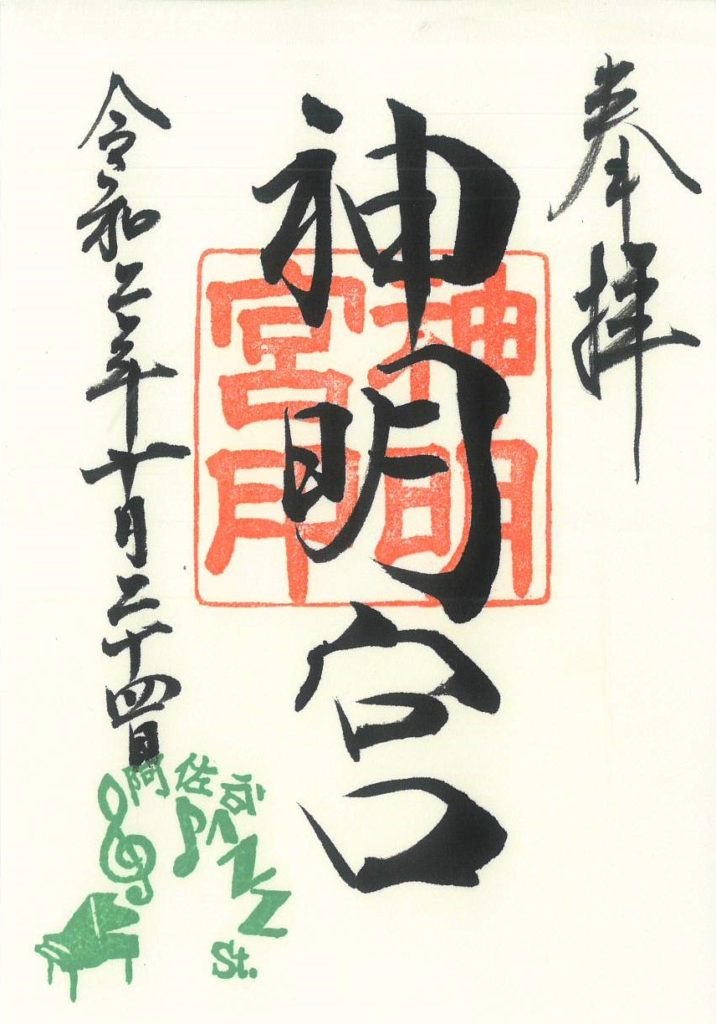 奉拝
神明宮
神明宮印
令和二年十月二十四日
阿佐谷
JAZZ
St.